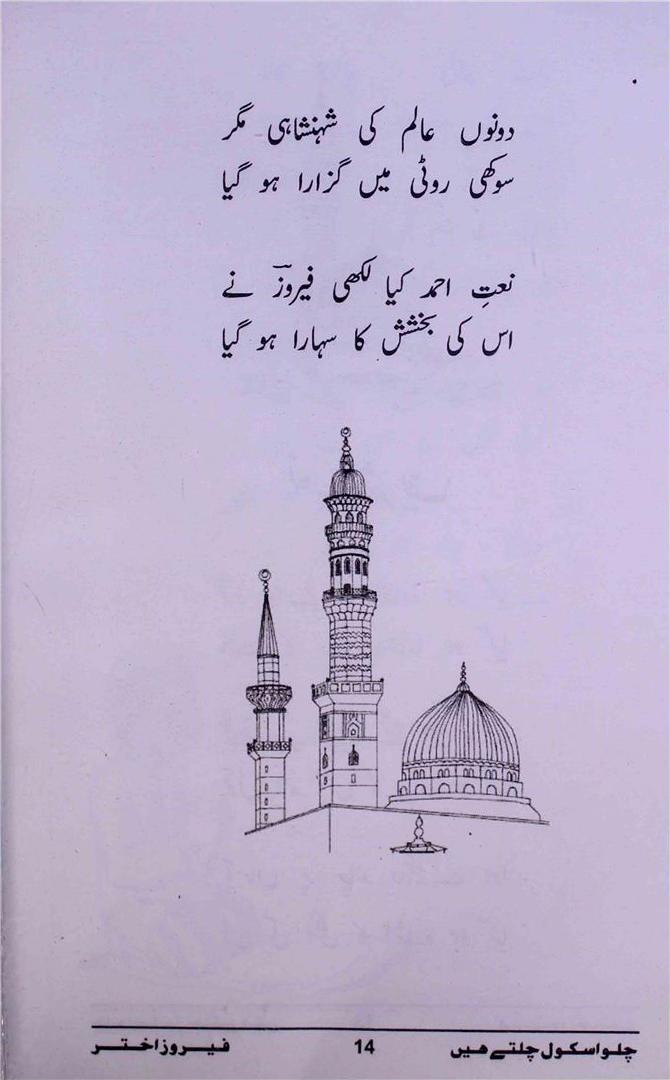 دونوں عالم کی شہنشاہی مگر
سوکھی روٹی میں گزارا ہو گیا
نعتِ احمد کیا لکھی فیروزؔ نے
اس کی بخشش کا سہارا ہو گیا
چلو اسکول چلتے ہیں 14 فیروز اختر